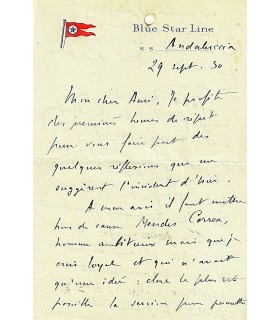 Blue Star Line
S.S. Andalucia
29 sept. 30
Mon cher Ami, Je profite
des premières heures de répit
pour vous faire part des
quelques réflexions que me
suggèrent l'incident d'hier.
A mon avis il faut mettre
hors de cause Mendes Correa,
homme ambitieux mais que je
crois loyal et qui n'avait
qu'une idée : clore le plus vite
possible la session pour